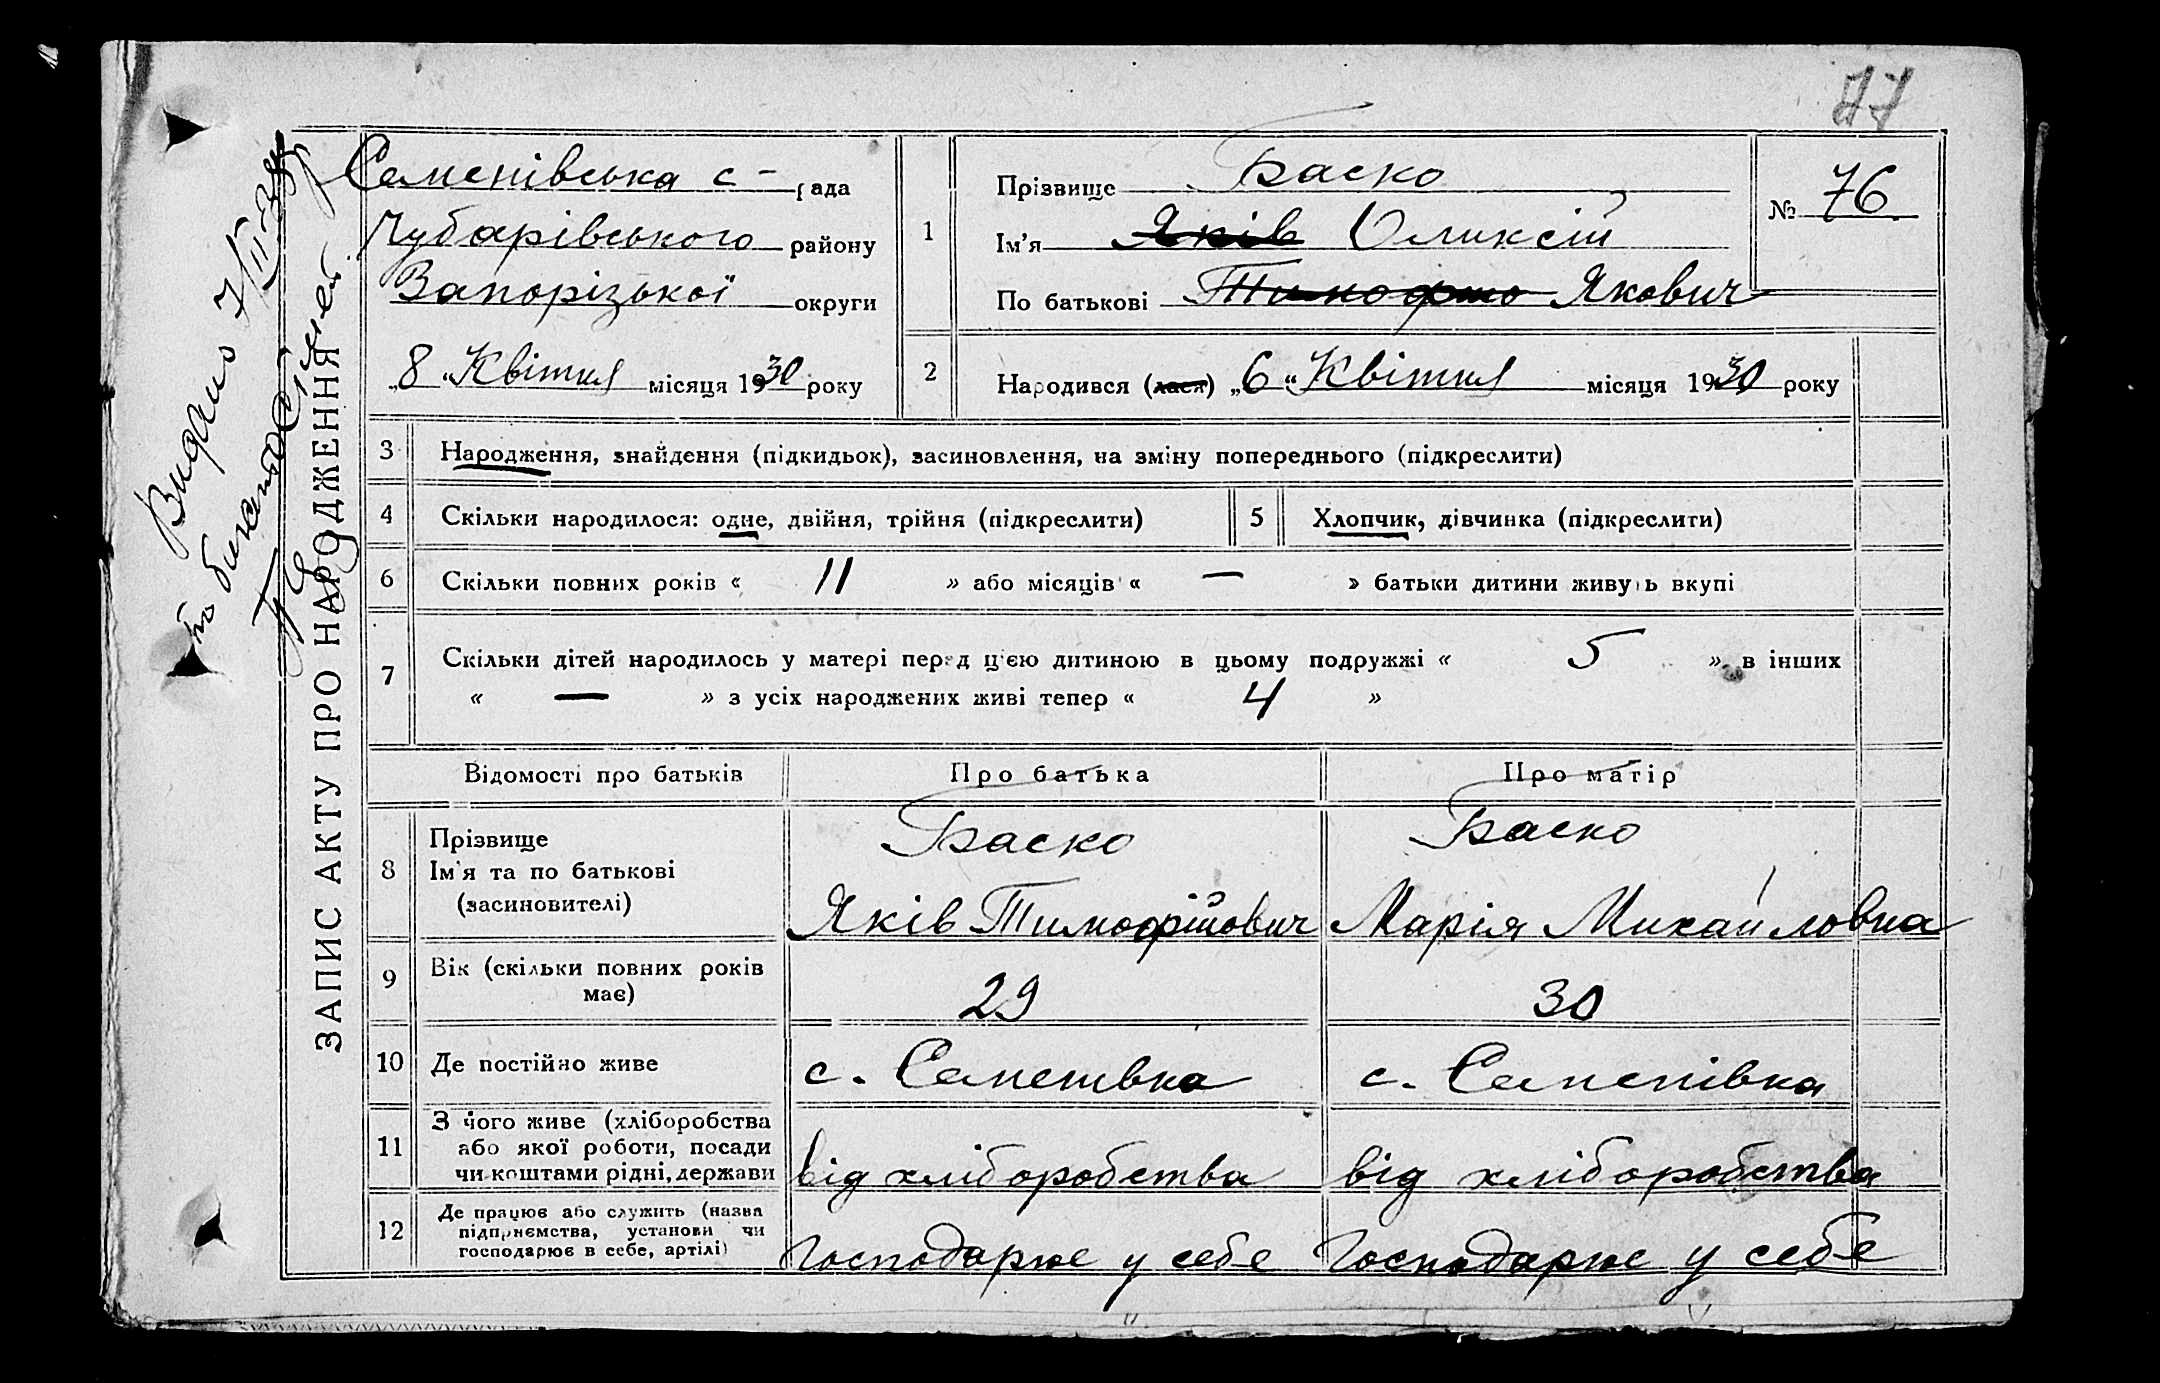 77
Семенівська с - рада
Чубарівського району
Запорізької округи
„8“ Квітня місяця 1930 року
1
Прізвище Баско
Ім'я Яків Оликсій
По батькові Тимофію Якович
№ 76
2
Народився (лася) „6“ Квітня місяця 1930 року
Видано 7/III-38
ЗАПИС АКТУ ПРО НАРОДЖЕННЯ
3 Народження, знайдення (підкидьок), засиновлення, на зміну попереднього (підкреслити)
4 Скільки народилося: одне, двійня, трійня (підкреслити) 5 Хлопчик, дівчинка (підкреслити)
6 Скільки повних років « 11 » або місяців « — » батьки дитини живуть вкупі
7 Скільки дітей народилось у матері перед цією дитиною в цьому подружжі « 5 » в інших
« — » з усіх народжених живі тепер « 4 »
Відомості про батьків Про батька Про матір
8 Прізвище
Ім'я та по батькові
(засиновителі)
Баско
Яків Тимофійович
Баско
Марія Михайловна
9 Вік (скільки повних років
має)
29 30
10 Де постійно живе с. Семенівка с. Семенівка
11 З чого живе (хліборобства
або якої роботи, посади
чи коштами рідні, держави
від хліборобства від хліборобства
12 Де працює або служить (назва
підприємства, установи чи
господарює в себе, артілі)
Господарює у себе Господарює у себе